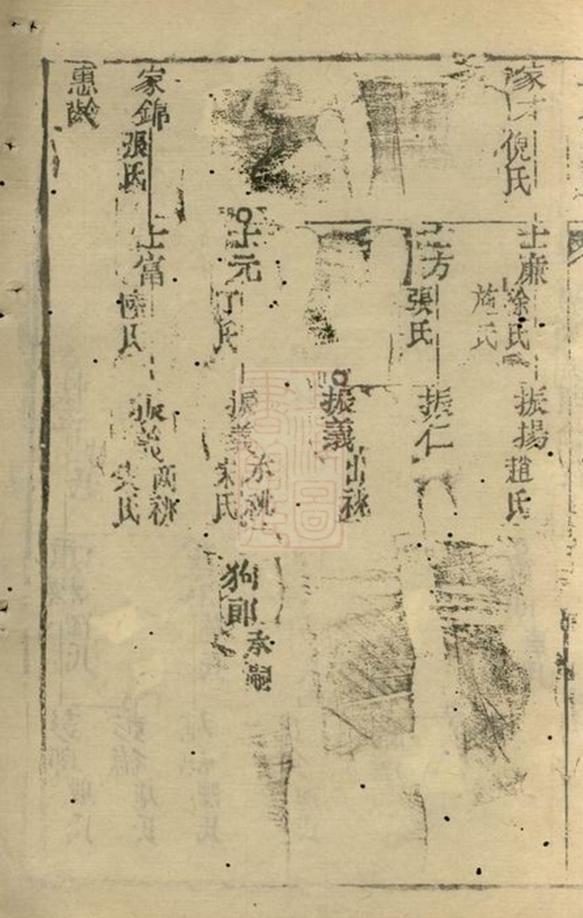 家 倪氏
士廉 徐氏
施氏
振揚 趙氏
士方 張氏
振仁
振義 出祧
士元 丁氏
振義 宋氏
承祧
狗郎 承嗣
家錦 張氏
士富 陸氏
振義 吳氏
兩祧
惠齡